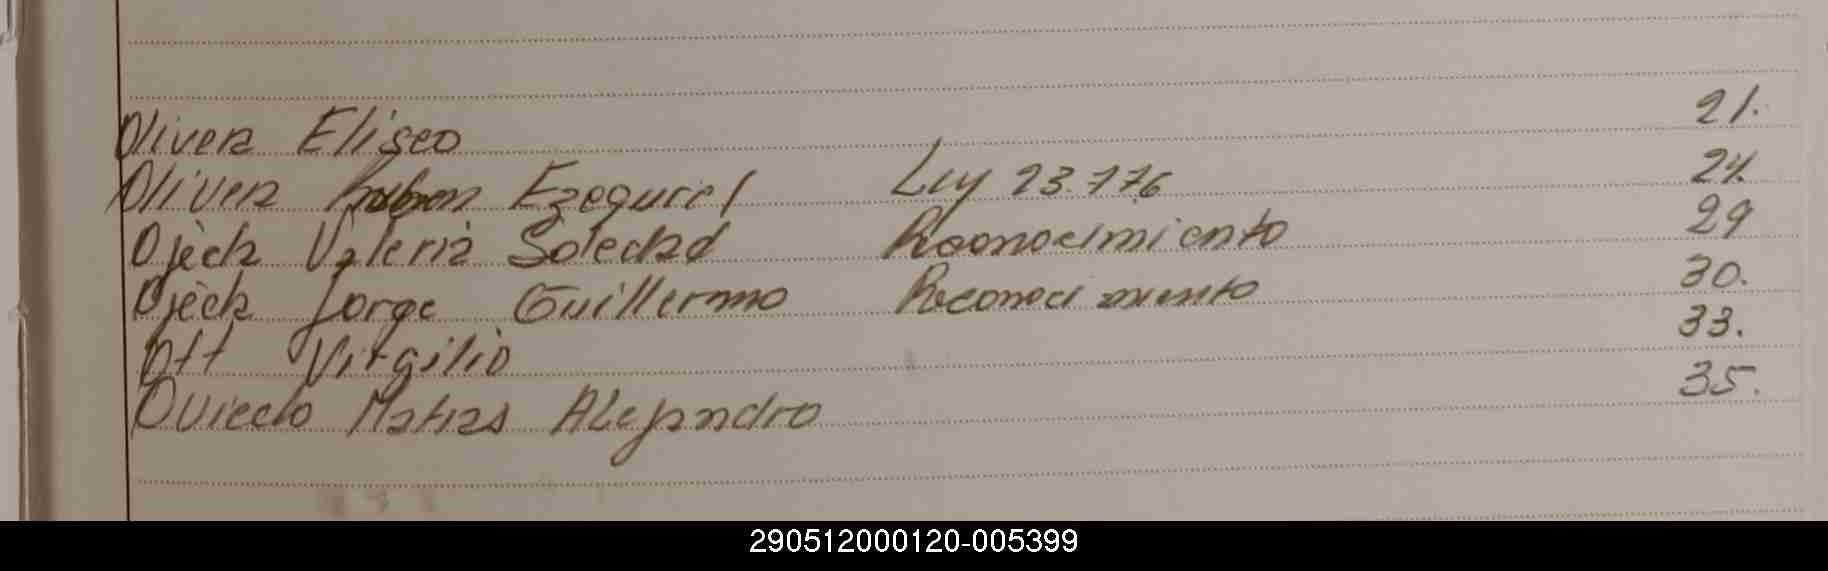 Olivera Eliseo 21.
Olivera Ruben Ezequiel Ley 23.776 24.
Ojeda Valeria Soledad Reconocimiento 29
Ojeda Jorge Guillermo Reconocimiento 30.
Ott Virgilio 33.
Oviedo Matias Alejandro 35.
290512000120-005399